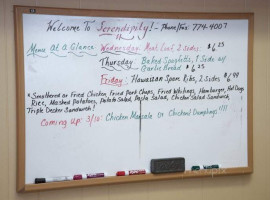 Welcome To Serendipity! - Phone/Fax: 774-4007
Menu at a Glance Wednesday Meat Loaf, 2 Sides $6.25
Thursday Baked Spaghetti, 1 Side w/
Garlic Bread $6.25
Friday: Hawaiian Spare Ribs, 2 Sides $6.99
* Smothered or Fried Chicken, Fried Pork Chops, Fried Whitings, Hamburger, Hot Dogs
Rice, Mashed Potatoes, Potato Salad, Pasta Salad, Chicken Salad Sandwich,
Triple Decker Sandwich!
Coming Up: 3/10: Chicken Marsala or Chicken & Dumplings!!!!